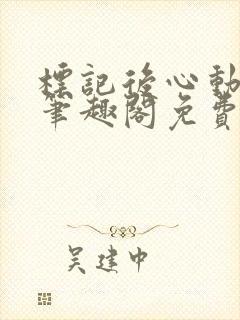 標記後心動
筆趣閣免費
吳建中